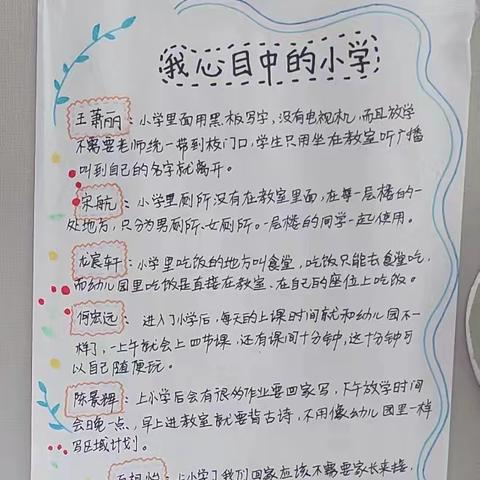 我心目中的小学
王萧丽：小学里面用黑板写字，没有电视机，而且放学
不需要老师统一带到校门口，学生只用坐在教室听广播
叫到自己的名字就离开。
宋航：小学里厕所没有在教室里面，在每一层楼的一
处地方，只分为男厕所、女厕所。一层楼的同学一起使用。
龙宸轩：小学里吃饭的地方叫食堂，吃饭只能去食堂吃，
而幼儿园里吃饭是直接在教室、在自己的座位上吃饭。
何宏远：进入了小学后，每天的上课时间就和幼儿园不一
样了，一上午就会上四节课，还有课间十分钟，这十分钟可
以自己随便玩。
陈景：上小学后会有很多作业要回家写，下午放学时间
会晚一点，早上进教室就要背古诗，不用像幼儿园里一样
写区域计划。
：上小学了我们回家应该不需要家长来接，